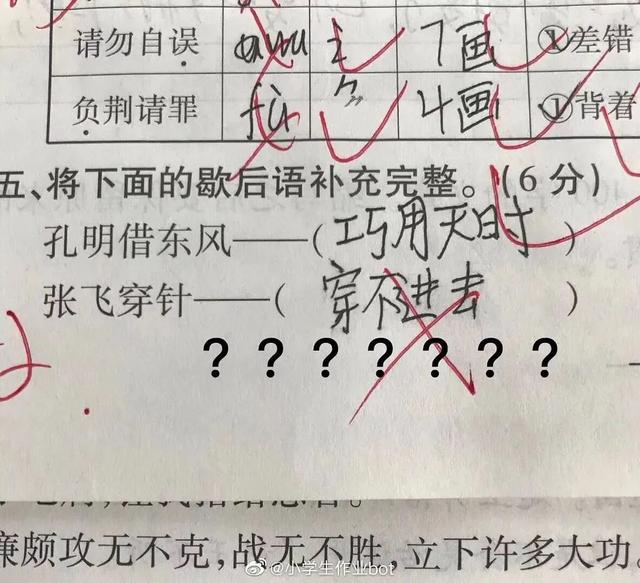 请勿自误 讠 7画 ①差错
负荆请罪 fù ⺈ 4画 ①背着
五、将下面的歇后语补充完整。(6分)
孔明借东风——(巧用天时)
张飞穿针——(穿不进去)
? ? ? ? ? ? ?
廉颇攻无不克,战无不胜,立下许多大功。
@小学生作业bot